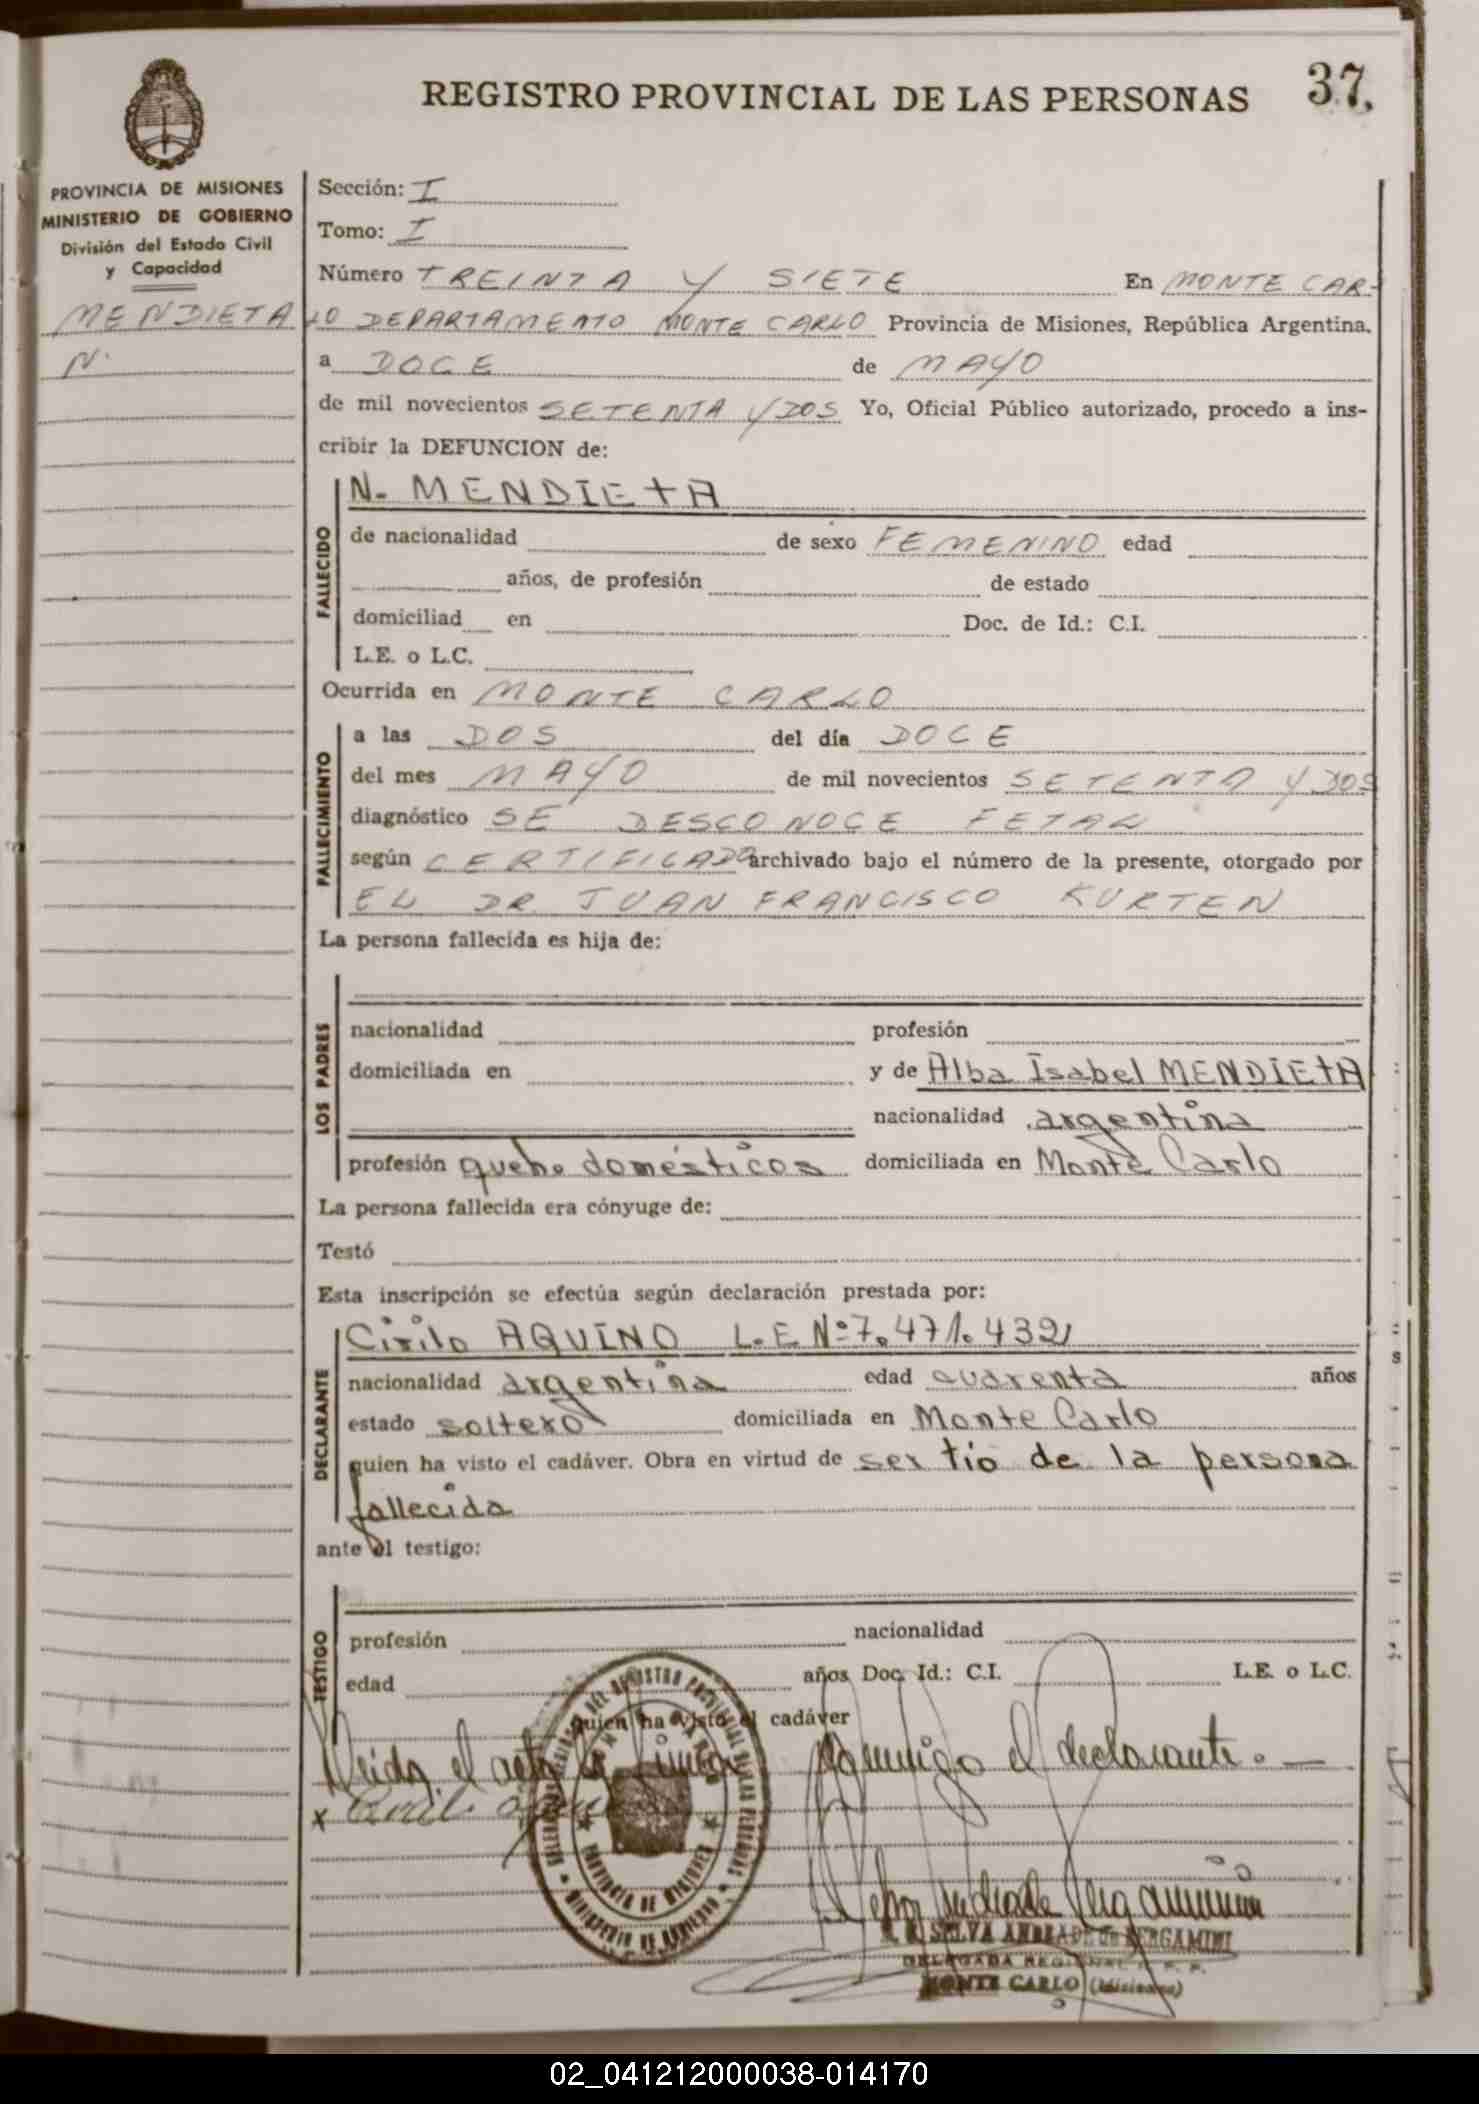 REGISTRO PROVINCIAL DE LAS PERSONAS 37.
PROVINCIA DE MISIONES
MINISTERIO DE GOBIERNO
División del Estado Civil
y Capacidad
MENDIETA
N.
Sección: I
Tomo: I
Número TREINTA Y SIETE En MONTE CAR-
LO DEPARTAMENTO MONTE CARLO Provincia de Misiones, República Argentina.
a DOCE de MAYO
de mil novecientos SETENTA Y DOS Yo, Oficial Público autorizado, procedo a ins-
cribir la DEFUNCION de:
FALLECIDO
N. MENDIETA
de nacionalidad de sexo FEMENINO edad
años, de profesión de estado
domiciliad en Doc. de Id.: C.I.
L.E. o L.C.
Ocurrida en MONTE CARLO
FALLECIMIENTO
a las DOS del día DOCE
del mes MAYO de mil novecientos SETENTA Y DOS
diagnóstico SE DESCONOCE FETAL
según CERTIFICADO archivado bajo el número de la presente, otorgado por
EL DR. JUAN FRANCISCO KURTEN
La persona fallecida es hija de:
LOS PADRES
nacionalidad profesión
domiciliada en y de Alba Isabel MENDIETA
nacionalidad argentina
profesión domésticos domiciliada en Monte Carlo
La persona fallecida era cónyuge de:
Testó
Esta inscripción se efectúa según declaración prestada por:
DECLARANTE
Cirilo AQUINO L.E.Nº7.471.432
nacionalidad argentina edad cuarenta años
estado soltero domiciliada en Monte Carlo
quien ha visto el cadáver. Obra en virtud de ser tío de la persona
fallecida
ante el testigo:
TESTIGO
profesión nacionalidad
edad años Doc. Id.: C.I. L.E. o L.C.
quien ha visto el cadáver
Leida el acta la firma conmigo el declarante. —
x
PROVINCIA DE MISIONES
MINISTERIO DE GOBIERNO
SELVA ANDRADE de BERGAMINI
DELEGADA REGIONAL
MONTE CARLO (Misiones)
02_041212000038-014170